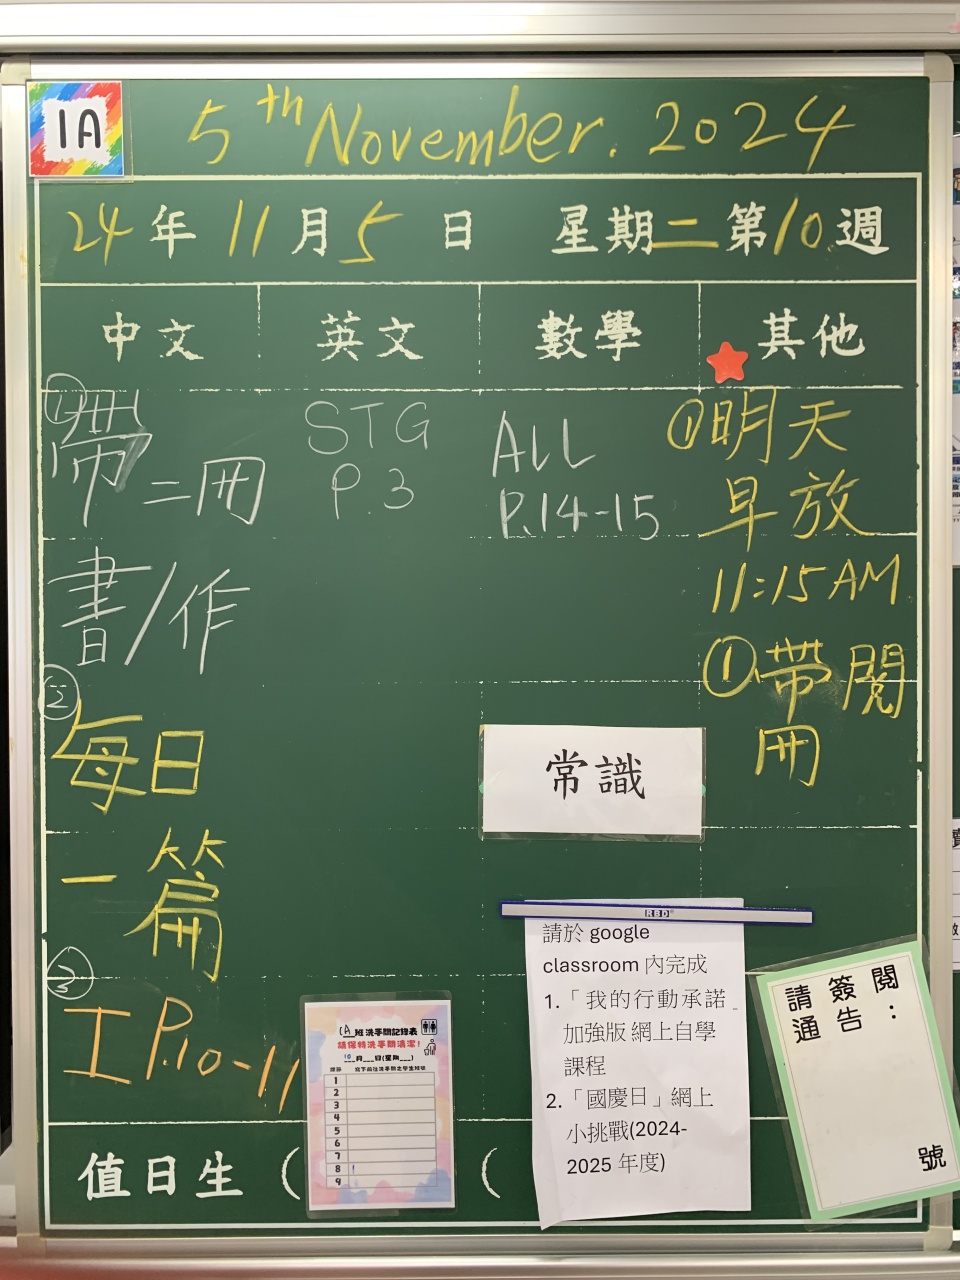 1A
5th November. 2024
24年11月5日 星期二第10週
中文 英文 數學 其他
①帶二冊
書/作
②每日
一篇
③工 P.10-11
STG
P.3
ALL
P.14-15
①明天
早放
11:15AM
①帶閱
冊
常識
RBD
請於 google
classroom 內完成
1.「我的行動承諾
加強版 網上自學
課程
2.「國慶日」網上
小挑戰(2024-
2025 年度)
請簽閱
通告：
號
1A班洗手間記錄表
請保持洗手間清潔!
10月__日(星期__)
1
2
3
4
5
6
7
8
9
值日生 ( (